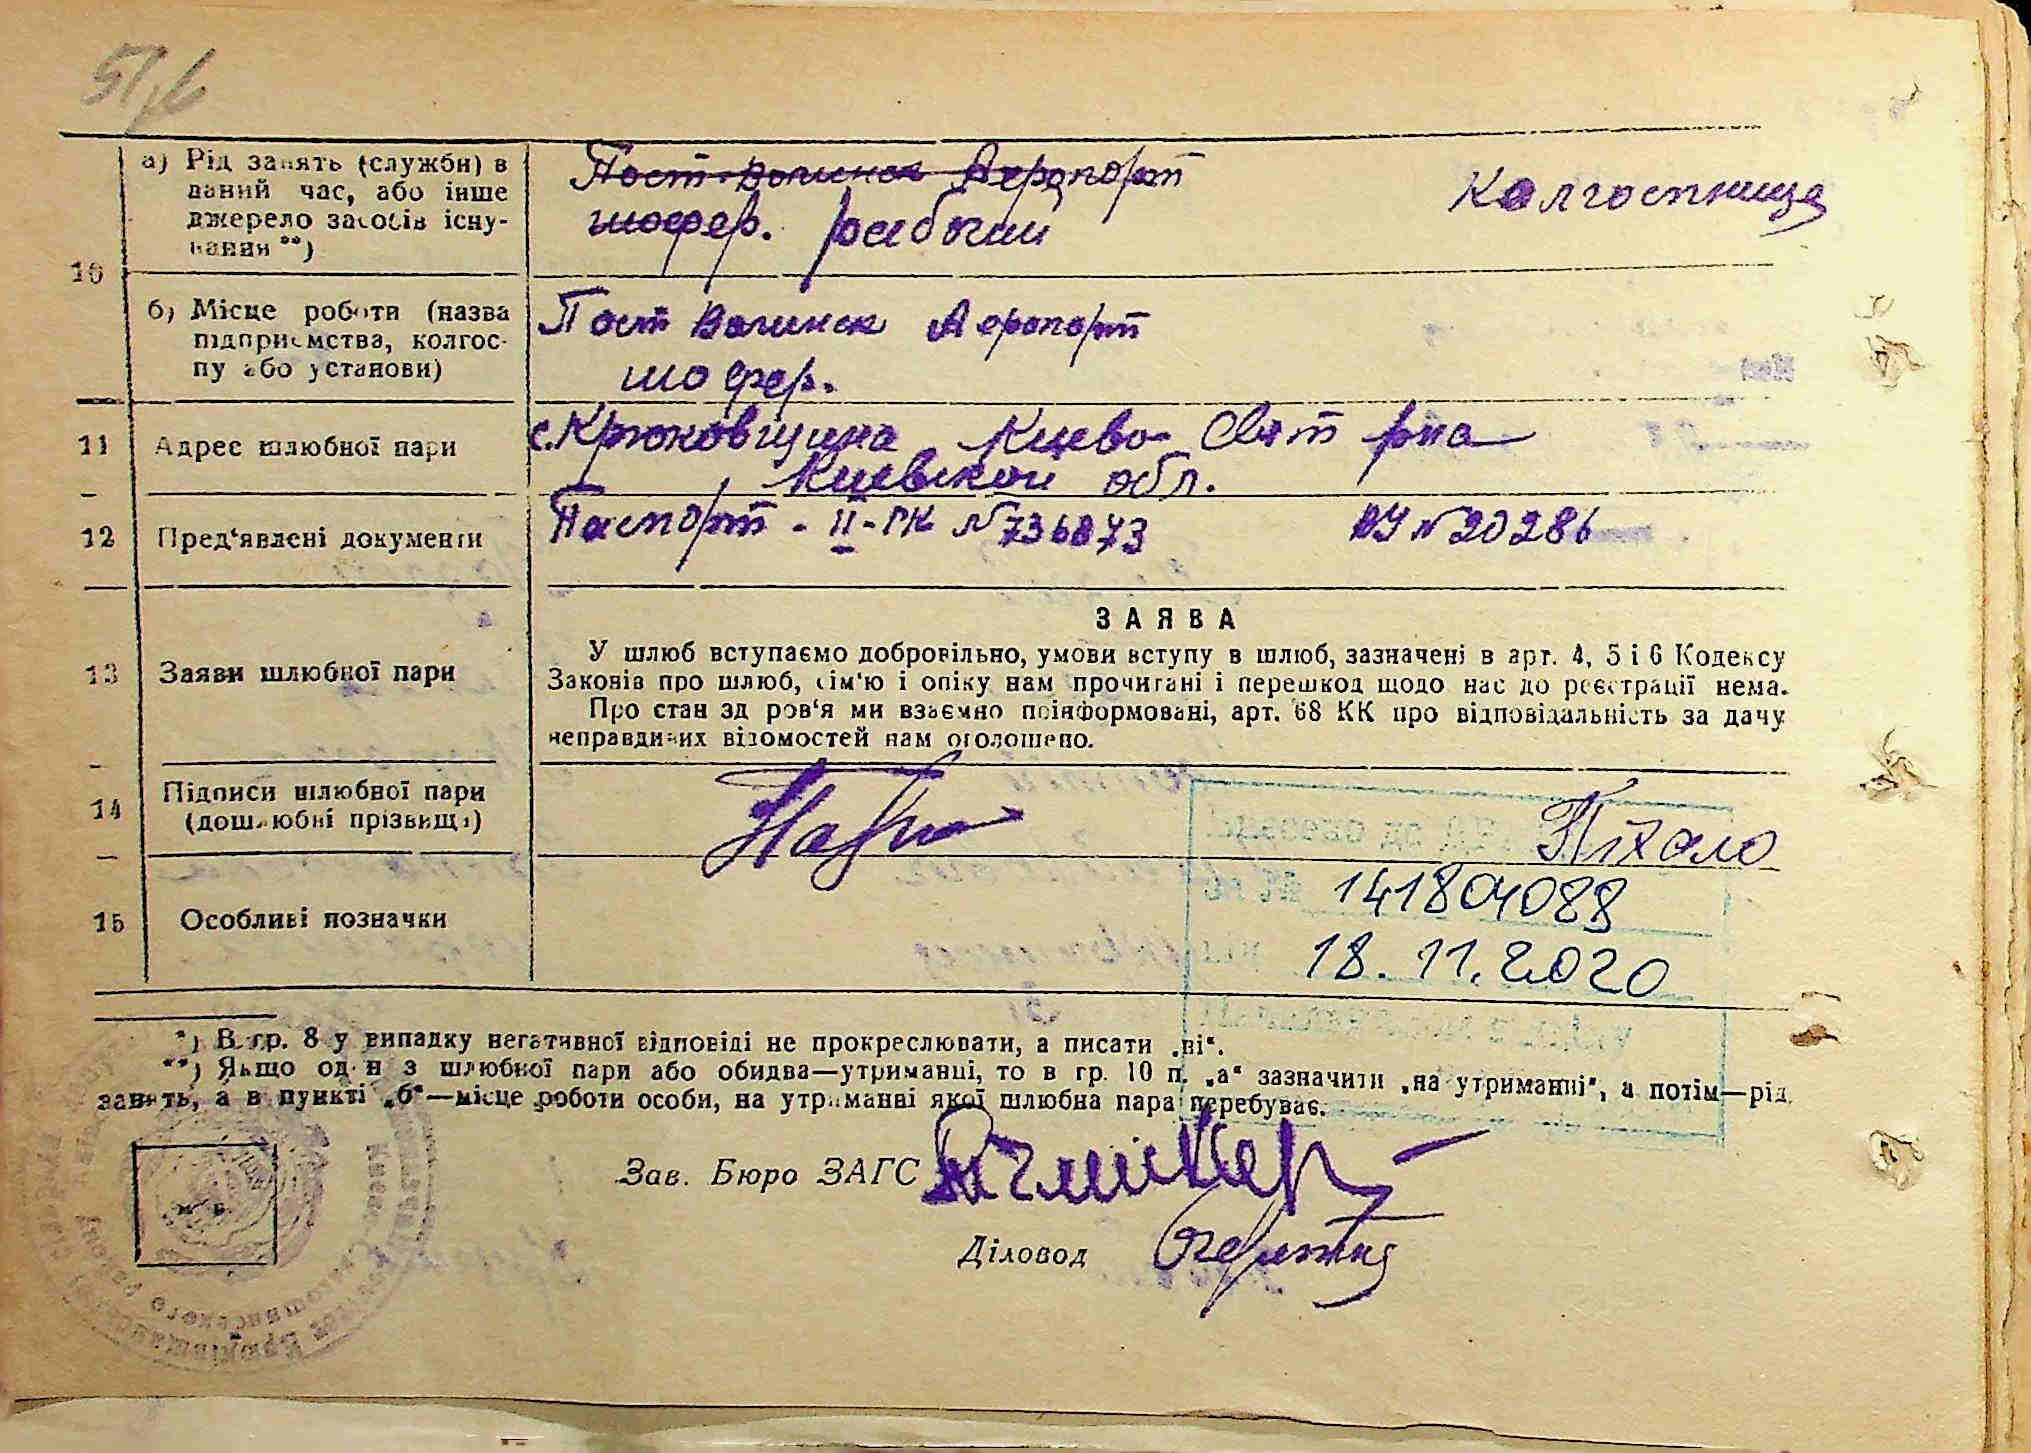 51,6
а) Рід занять (служби) в
даний час, або інше
джерело засобів існу-
вання **)
Пост-Волинск Аеропорт
шофер. рабочий
Колгоспниця
10
б) Місце роботи (назва
підприємства, колгос-
пу або установи)
Пост Волинск Аеропорт
шофер.
11 Адрес шлюбної пари
с. Крюковщина Киево-Свят р-на
Киевской обл.
12 Пред'явлені документи
Паспорт - II-РК № 736873
№ 20286
13 Заяви шлюбної пари
ЗАЯВА
У шлюб вступаємо добровільно, умови вступу в шлюб, зазначені в арт. 4, 5 і 6 Кодексу
Законів про шлюб, сім'ю і опіку нам прочитані і перешкод щодо нас до реєстрації нема.
Про стан здоров'я ми взаємно поінформовані, арт. 68 КК про відповідальність за дачу
неправдивих відомостей нам оголошено.
14 Підписи шлюбної пари
(дошлюбні прізвища)
Піхало
15 Особливі позначки
141804088
18.11.2020
*) В гр. 8 у випадку негативної відповіді не прокреслювати, а писати „ні“.
**) Якщо один з шлюбної пари або обидва—утриманці, то в гр. 10 п. „а“ зазначити „на утриманні“, а потім—рід
занять, а в пункті „б“—місце роботи особи, на утриманні якої шлюбна пара перебуває.
Зав. Бюро ЗАГС
Діловод